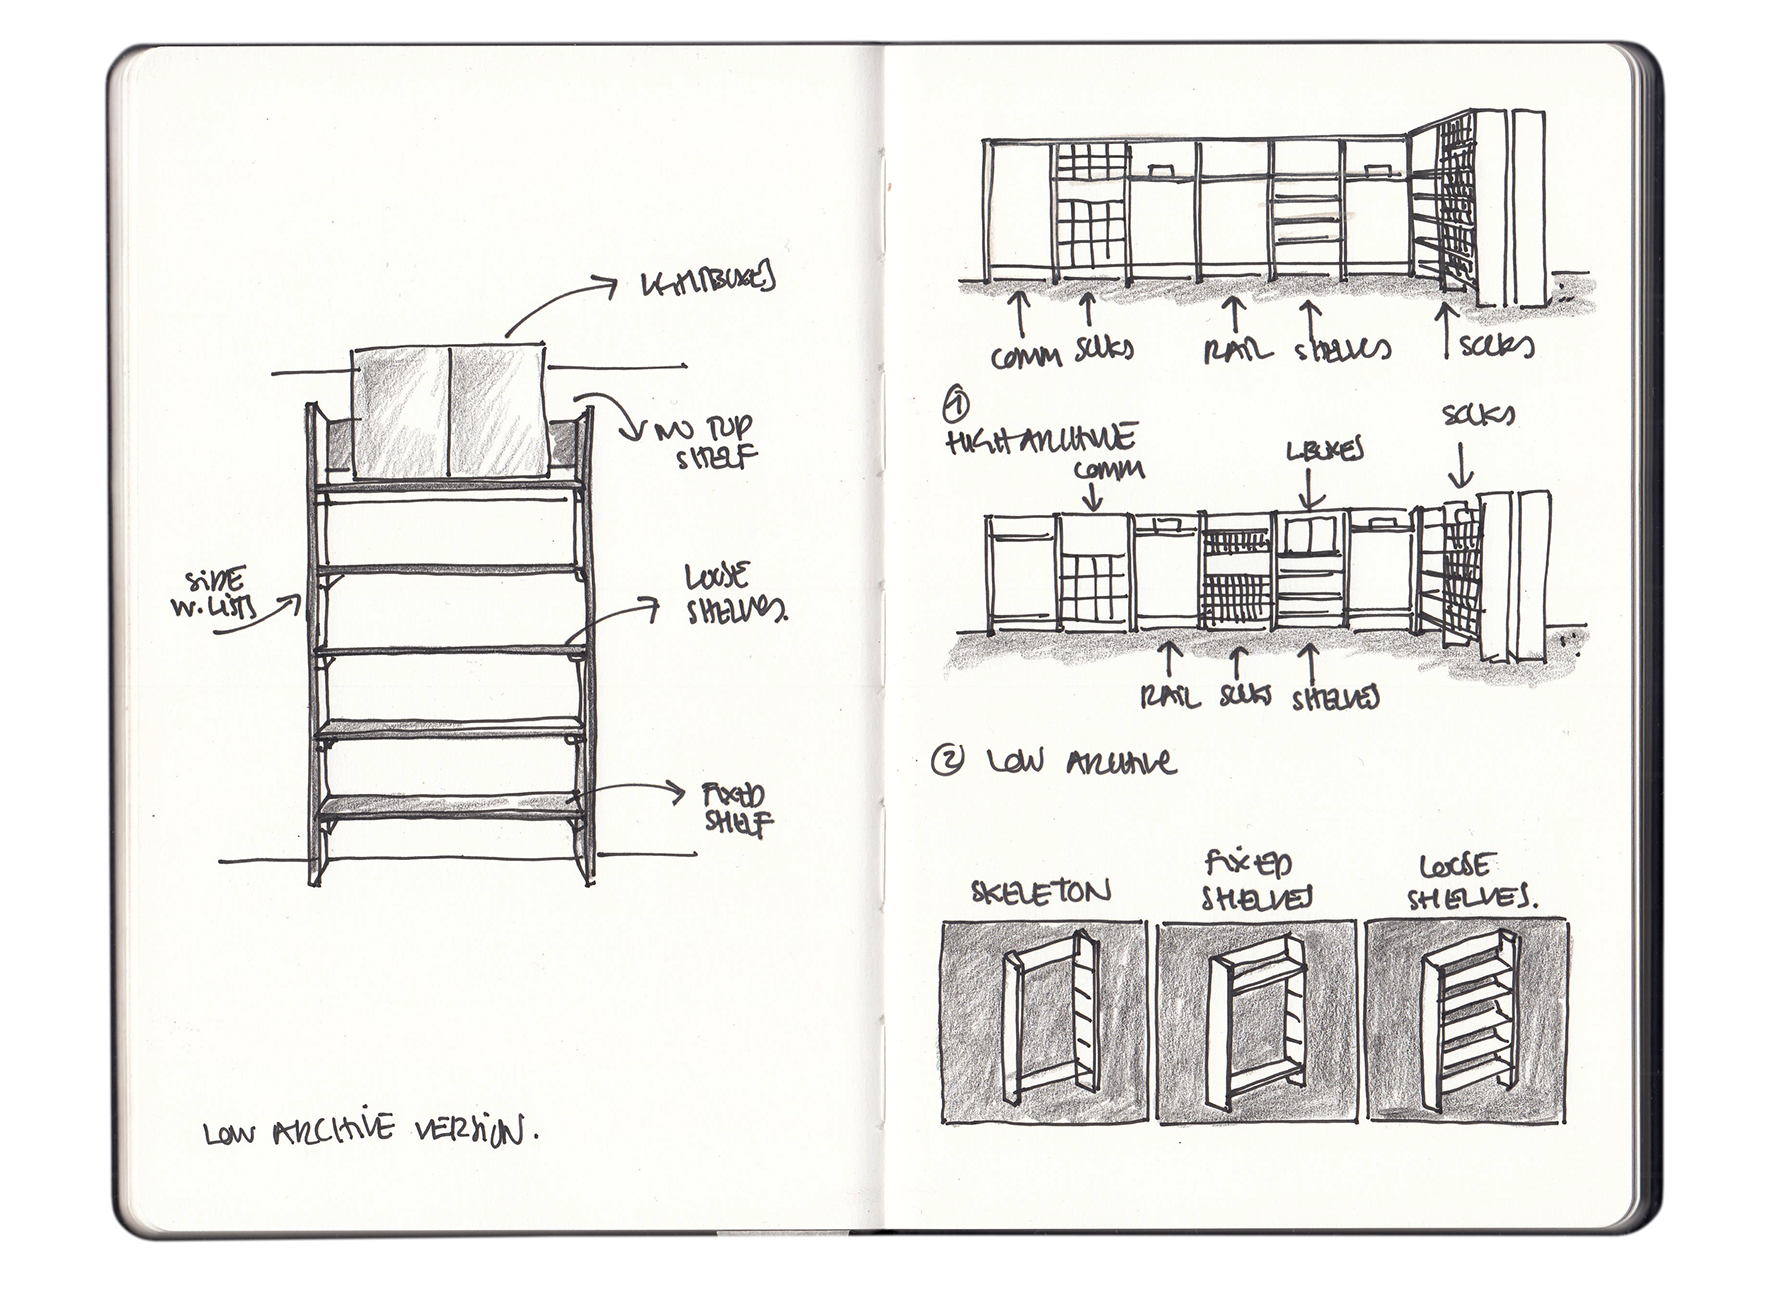 LIGHTBOXES
NO TOP
SHELF
SIDE
W. LISTS
LOOSE
SHELVES.
FIXED
SHELF
LOW ARCHIVE VERSION.
COMM SOCKS RAIL SHELVES SOCKS
1
HIGH ARCHIVE
SOCKS
COMM
L.BOXES
RAIL SOCKS SHELVES
2 LOW ARCHIVE
SKELETON
FIXED
SHELVES
LOOSE
SHELVES.